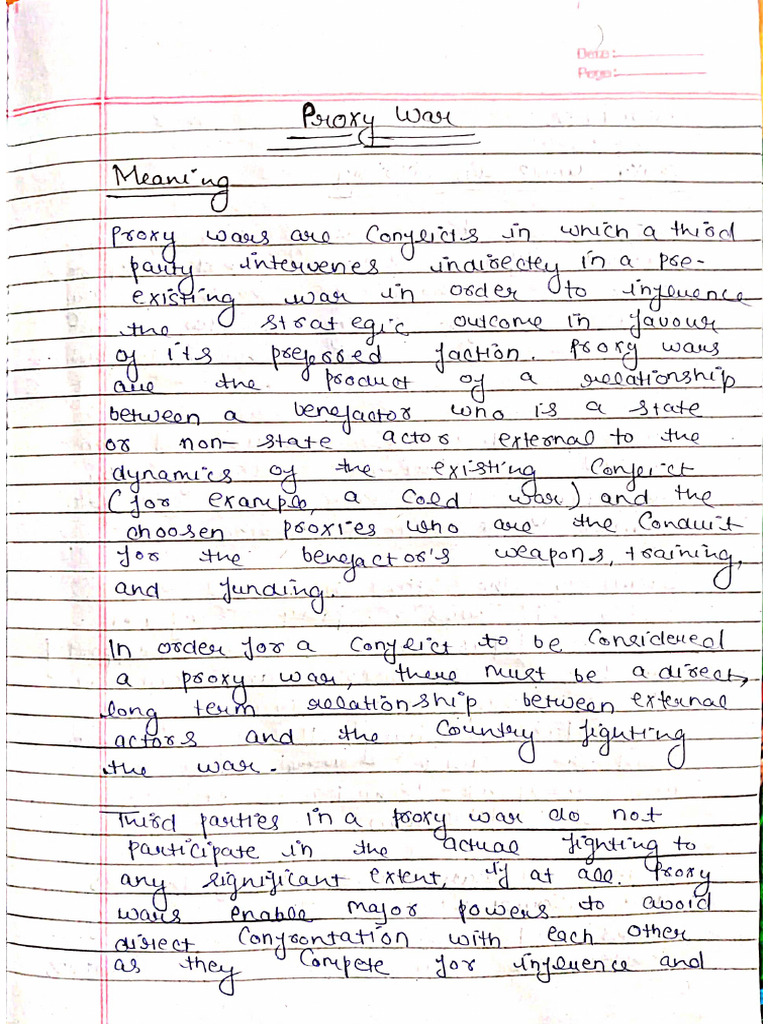 Date:
Page:
Proxy War
Meaning
Proxy wars are Conflicts in which a third
party intervenes indirectly in a pre-
existing war in order to influence
the strategic outcome in favour
of its preferred faction. Proxy wars
are the product of a relationship
between a benefactor who is a state
or non-state actor external to the
dynamics of the existing Conflict
(for example, a Cold war) and the
choosen proxies who are the Conduit
for the benefactor's weapons, training,
and funding.
In order for a Conflict to be Considered
a proxy war, there must be a direct,
long term relationship between external
actors and the Country fighting
the war.
Third parties in a proxy war do not
participate in the actual fighting to
any significant extent, if at all. Proxy
wars enable major powers to avoid
direct Confrontation with each other
as they Compete for influence and